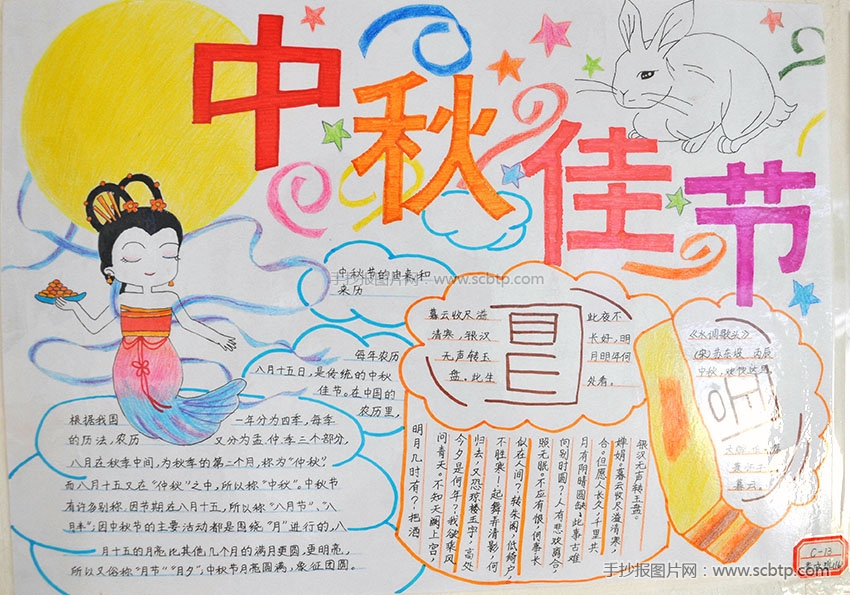 中秋佳节
手抄报图片网：www.scbtp.com
中秋节的由来和
来历
每年农历
八月十五日，是传统的中秋
佳节。在中国的
农历里，
根据我国 一年分为四季，每季
的历法，农历 又分为孟、仲、季三个部分，
八月在秋季中间，为秋季的第二个月，称为“仲秋”，
而八月十五又在“仲秋”之中，所以称“中秋”。中秋节
有许多别称。因节期在八月十五，所以称“八月节”、“八
月半”；因中秋节的主要活动都是围绕“月”进行的，八
月十五的月亮比其他几个月的满月更圆，更明亮，
所以又俗称“月节”“月夕”，中秋节月亮圆满，象征团圆。
暮云收尽溢
清寒，银汉
无声转玉
盘。此生
此夜不
长好，明
月明年何
处看。
《水调歌头》
(宋)苏东坡 丙辰
中秋，欢饮达旦
银汉无声转玉盘。
婵娟。暮云收尽溢清寒，
合。但愿人长久，千里共
月有阴晴圆缺，此事古难
向别时圆？人有悲欢离合，
照无眠。不应有恨，何事长
似在人间？转朱阁，低绮户，
不胜寒！起舞弄清影，何
归去，又恐琼楼玉宇，高处
今夕是何年？我欲乘风
问青天。不知天阙上宫，
明月几时有？把酒
C-13
手抄报图片网：www.scbtp.com